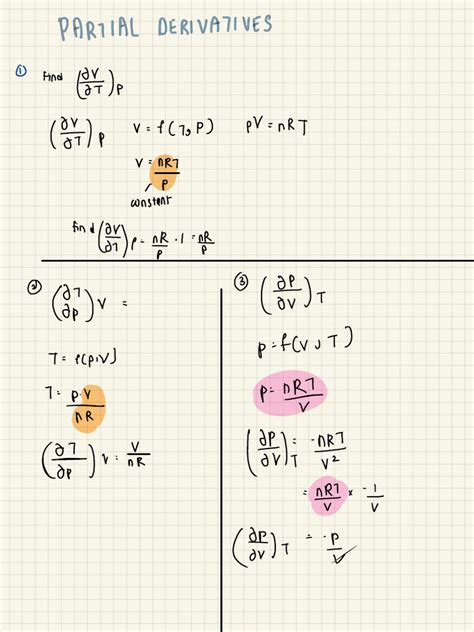 PARTIAL DERIVATIVES
① Find (∂V/∂T)P
(∂V/∂T)P V = f(T, P) PV = nRT
V = nRT/P
constant
find (∂V/∂T)P = nR/P · 1 = nR/P
② (∂T/∂P)V =
T = f(P,V)
T = P·V/nR
(∂T/∂P)V = V/nR
③ (∂P/∂V)T
P = f(V, T)
P = nRT/V
(∂P/∂V)T = -nRT/V²
= nRT/V × -1/V
(∂P/∂V)T = -P/V